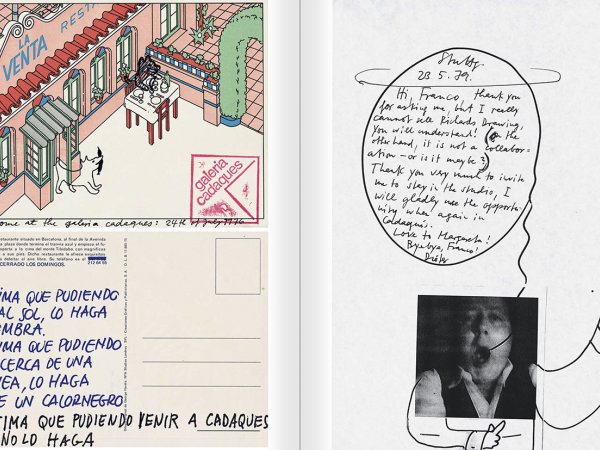 LA
VENTA
REST
galeria
cadaques
ome at the galeria cadaques: 24th of july 1976
restaurante situado en Barcelona, al final de la Avenida
plaza donde termina el tranvía azul y empieza el fu-
a la cima del monte Tibidabo, con magníficas
a sus pies. Dicho restaurante le ofrece exquisitos
deleitar al aire libre. Su teléfono es el
212 64 55
CERRADO LOS DOMINGOS.
IMA QUE PUDIENDO
AL SOL, LO HAGA
OMBRA.
IMA QUE PUDIENDO
CERCA DE UNA
EA, LO HAGA
E UN CALORNEGRO
TIMA QUE PUDIENDO VENIR A CADAQUES
NO LO HAGA
Stuttg.
23.5.79.
Hi, Franco, thank you
for asking me, but I really
cannot sell Richards Drawing,
you will understand! On the
other hand, it is not a collabor-
ation - or is it maybe?
Thank you very much to invite
me to stay in the studio, I
will gladly use the opportu-
nity when again in
Cadaqués.
Love to Margareta!
Byebye, Franco!
Dieter